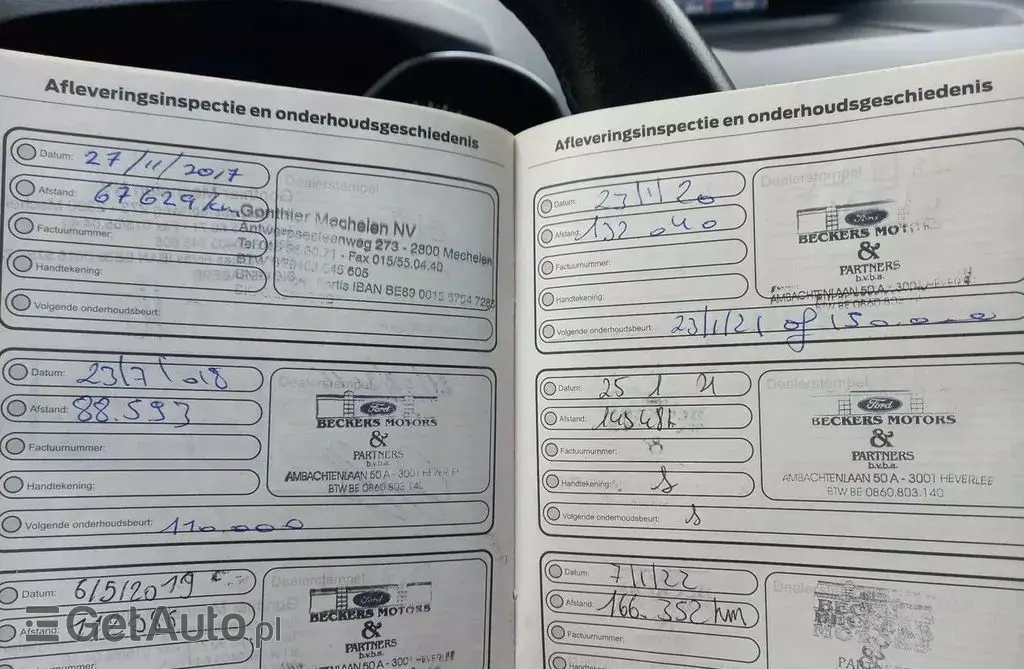 Afleveringsinspectie en onderhoudsgeschiedenis
Datum: 27/11/2017
Afstand: 67629 km
Factuurnummer:
Handtekening:
Volgende onderhoudsbeurt:
Dealerstempel
Gonthier Mechelen NV
Antwerpsesteenweg 273 - 2800 Mechelen
Fax 015/55.04.40
IBAN BE89 0015
Datum: 23/7/018
Afstand: 88.593
Factuurnummer:
Handtekening:
Volgende onderhoudsbeurt: 110.000
Dealerstempel
Ford
BECKERS MOTORS
&
PARTNERS
b.v.b.a.
AMBACHTENLAAN 50 A - 3001 HEVERLEE
BTW BE 0860.803.140
Datum: 6/5/2019
Afstand:
Dealerstempel
Ford
BECKERS MOTORS
&
PARTNERS
b.v.b.a.
AMBACHTENLAAN 50 A - 3001 HEVERLEE
Afleveringsinspectie en onderhoudsgeschiedenis
Datum: 23/1/20
Afstand: 132.040
Factuurnummer:
Handtekening:
Volgende onderhoudsbeurt: 23/1/21 of 150.000
Dealerstempel
Ford
BECKERS
&
PARTNERS
b.v.b.a.
AMBACHTENLAAN 50 A - 3001 HEVERLEE
BTW BE 0860
Datum: 25 1 21
Afstand:
Factuurnummer:
Handtekening:
Volgende onderhoudsbeurt:
Dealerstempel
Ford
BECKERS MOTORS
&
PARTNERS
b.v.b.a.
AMBACHTENLAAN 50 A - 3001 HEVERLEE
BTW BE 0860.803.140
Datum: 7/1/22
Afstand: 166.352 km
Factuurnummer:
Dealerstempel
GetAuto.pl